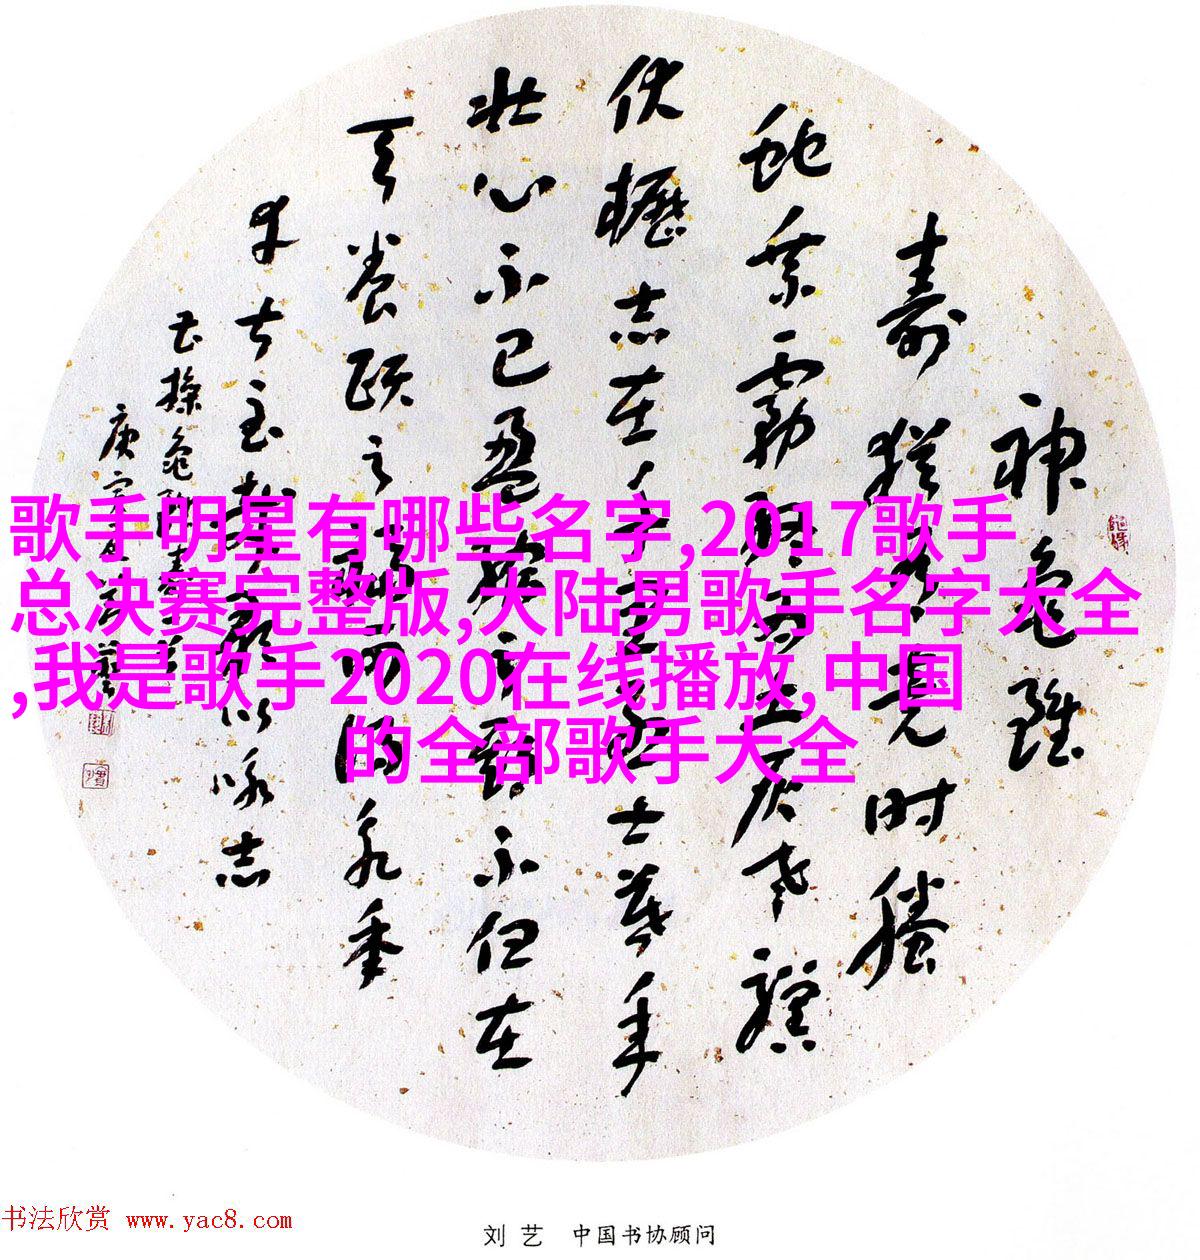 神龟雖
寿猶有竟时腾
蛇乘雾终为土灰老骥
伏櫪志在千里烈士暮年
壮心不已盈缩之期不但在
天养颐之福可得永年
幸甚至哉歌以咏志
曹操龟虽寿
庚寅
歌手明星有哪些名字,2017歌手
总决赛完整版,大陆男歌手名字大全
,我是歌手2020在线播放,中国
的全部歌手大全
书法欣赏 www.yac8.com
刘艺 中国书协顾问